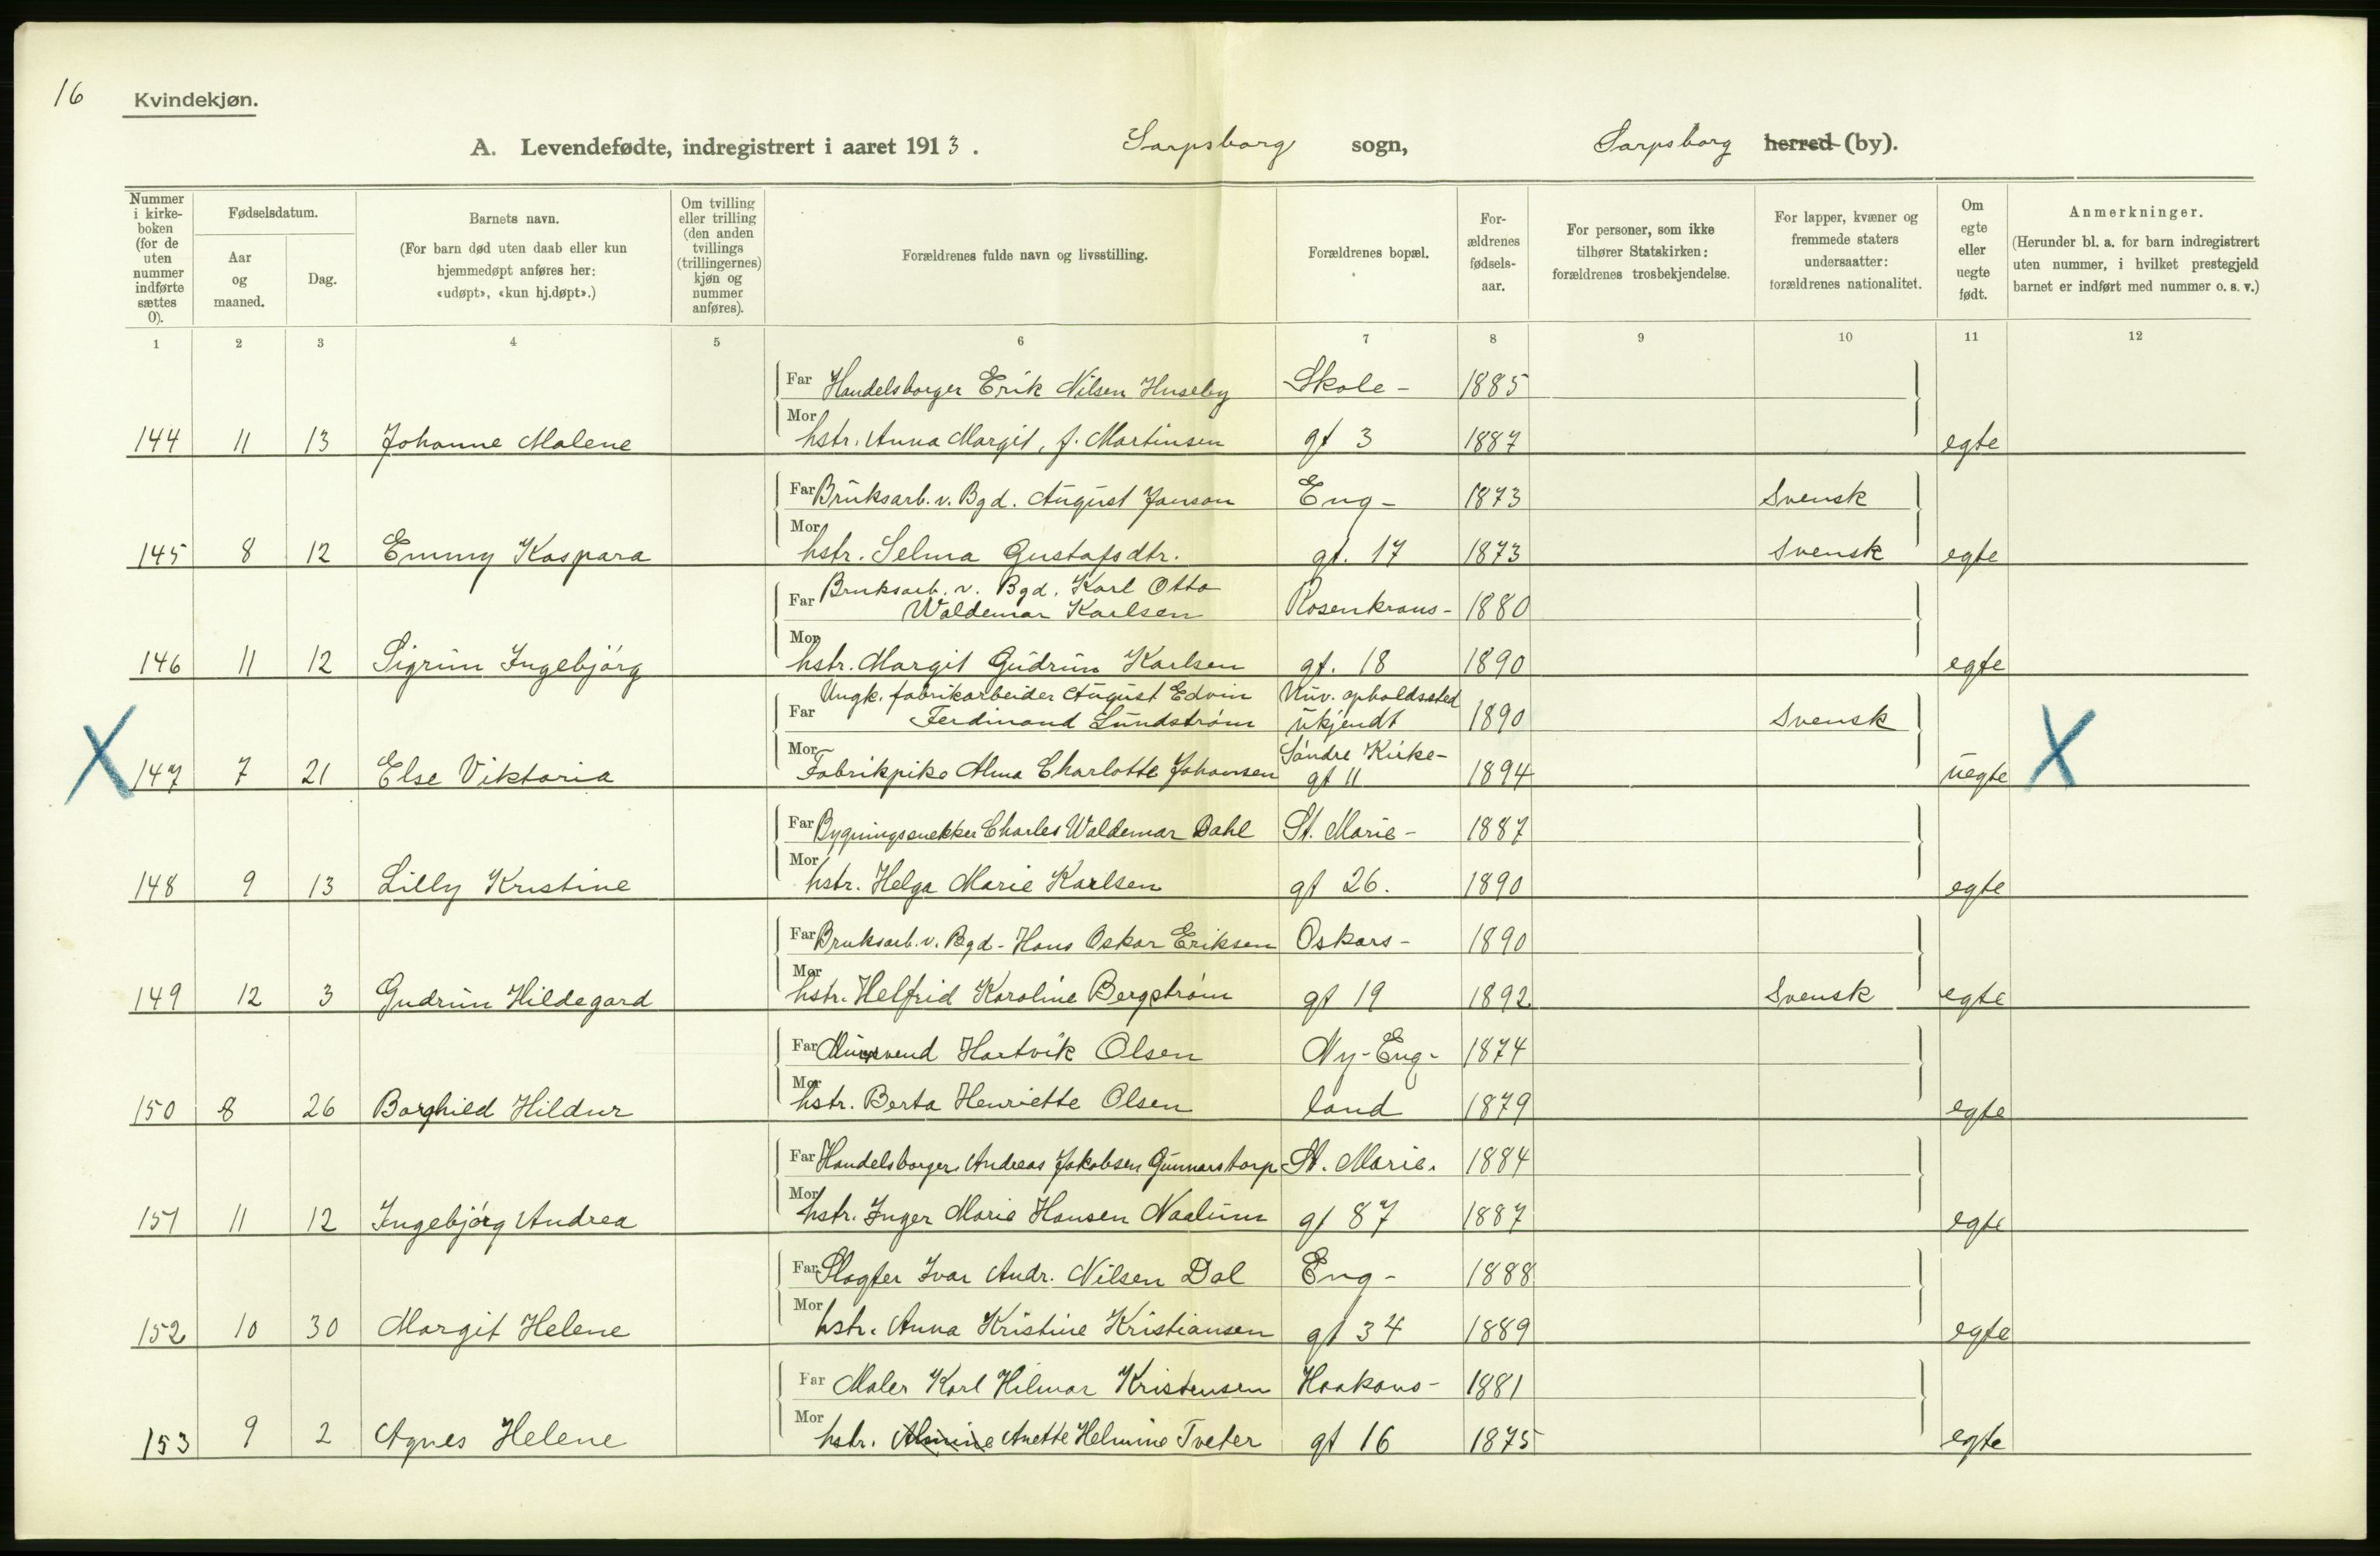 16 Kvindekjøn.
A. Levendefødte, indregistrert i aaret 1913. Sarpsborg sogn, Sarpsborg herred (by).
Nummer i kirkeboken (for de uten nummer indførte sættes 0).
Fødselsdatum.
Aar og maaned.
Dag.
Barnets navn.
(For barn død uten daab eller kun hjemmedøpt anføres her: «udøpt», «kun hj.døpt».)
Om tvilling eller trilling (den anden tvillings (trillingernes) kjøn og nummer anføres).
Forældrenes fulde navn og livsstilling.
Forældrenes bopæl.
For-ældrenes fødsels-aar.
For personer, som ikke tilhører Statskirken: forældrenes trosbekjendelse.
For lapper, kvæner og fremmede staters undersaatter: forældrenes nationalitet.
Om egte eller uegte født.
Anmerkninger.
(Herunder bl. a. for barn indregistrert uten nummer, i hvilket prestegjeld barnet er indført med nummer o. s. v.)
1 2 3 4 5 6 7 8 9 10 11 12
Far Handelsborger Erik Nilsen Huseby Skole- 1885
144 11 13 Johanne Malene Mor hstr. Anna Margit, f. Martinsen gt 3 1887 egte
Far Bruksarb. v. Bgd. August Janson Eng- 1873 Svensk
145 8 12 Emmy Kaspara Mor hstr. Selma Gustafsdtr. gt. 17 1873 Svensk egte
Far Bruksarb. v. Bgd. Karl Otto
Waldemar Karlsen Rosenkrans- 1880
146 11 12 Sigrun Ingebjörg Mor hstr. Margit Gudrun Karlsen gt. 18 1890 egte
Far Ungk. fabrikarbeider August Edvin Nuv. opholdssted
Ferdinand Lundström ukjendt 1890 Svensk
X 147 7 21 Else Viktoria Mor Fabrikpike Alma Charlotte Johansen Söndre Kirke-
gt 11 1894 uegte X
Far Bygningssnekker Charles Waldemar Dahl St. Marie- 1887
148 9 13 Lilly Kristine Mor hstr. Helga Marie Karlsen gt 26. 1890 egte
Far Bruksarb. v. Bgd- Hans Oskar Eriksen Oskars- 1890
149 12 3 Gudrun Hildegard Mor hstr. Helfrid Karoline Bergström gt 19 1892 Svensk egte
Far Hartvik Olsen Ny-Eng- 1874
150 8 26 Borghild Hildur Mor hstr. Berta Henriette Olsen land 1879 egte
Far Handelsborger Andreas Jakobsen Gunnarstorp St. Marie. 1884
151 11 12 Ingebjörg Andrea Mor hstr. Inger Marie Hansen Naalum gt 87 1887 egte
Far Slagter Ivar Andr. Nilsen Dal Eng- 1888
152 10 30 Margit Helene Mor hstr. Anna Kristine Kristiansen gt 34 1889 egte
Far Maler Karl Hilmar Kristensen Haakons- 1881
153 9 2 Agnes Helene Mor hstr. Anette Helmine Tveter gt 16 1875 egte